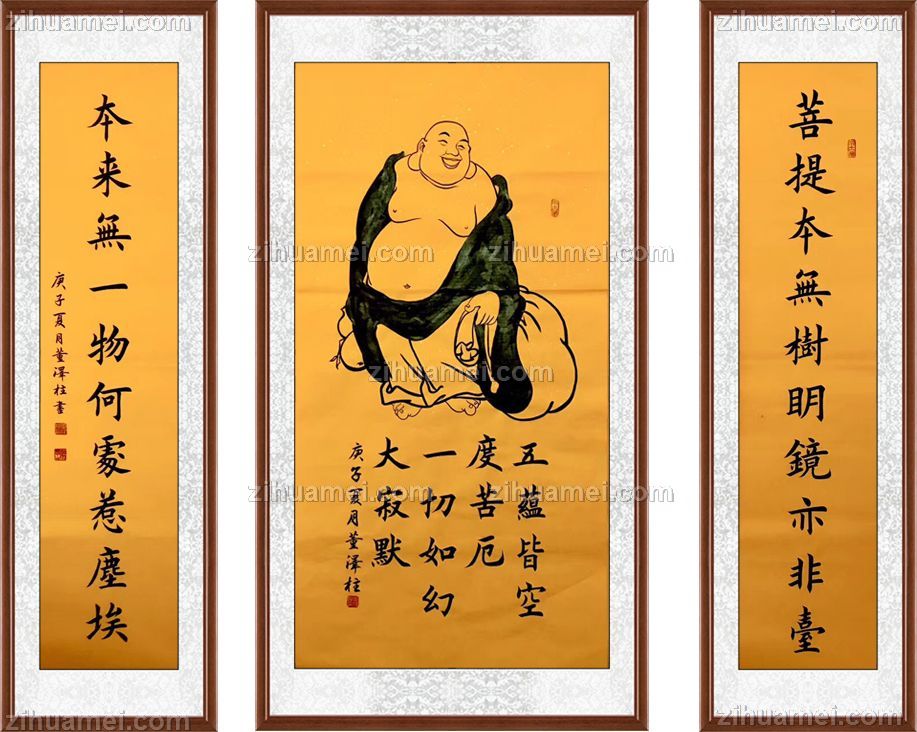 zihuamei.com
zihuamei.com
zihuamei.com
菩提本無樹眀鏡亦非臺
五蘊皆空
度苦厄
一切如幻
大寂默
庚子夏月董澤柱
本来無一物何處惹塵埃
庚子夏月董澤柱書
zihuamei.com
zihuamei.com
zihuamei.com
zihuamei.com
zihuamei.com
zihuamei.com
zihuamei.com
zihuamei.com